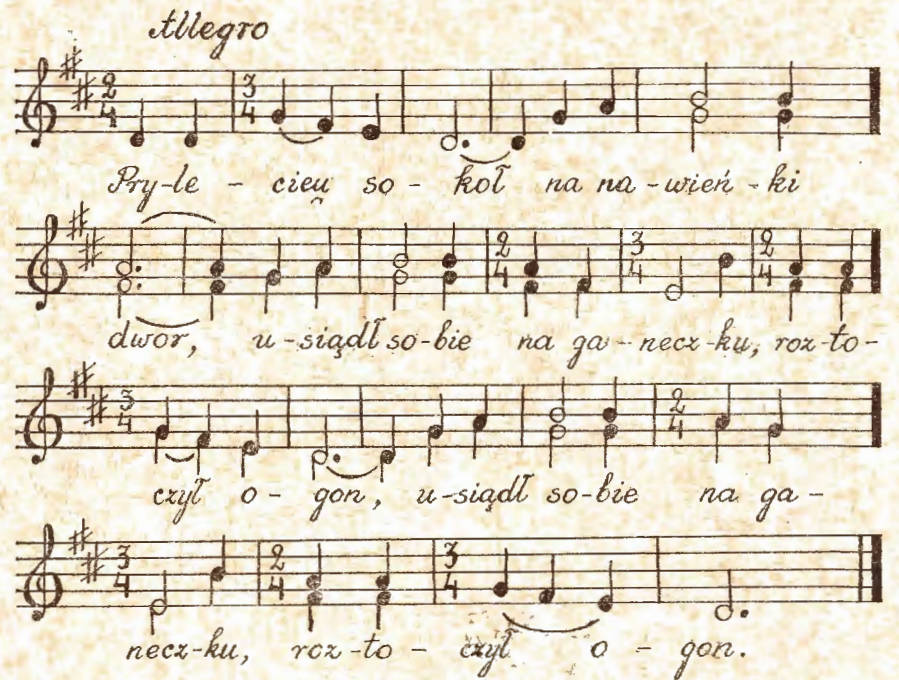 Allegro
2 4 3 4
Pry-le - cieu̯ so - koł na na-wień-ki
2 4 3 4 2 4
dwor, u-siądł so-bie na ga-necz-ku, roz-to-
3 4 2 4
czył o - gon, u-siądł so-bie na ga-
3 4 2 4 3 4
necz-ku, roz-to- czył o - gon.